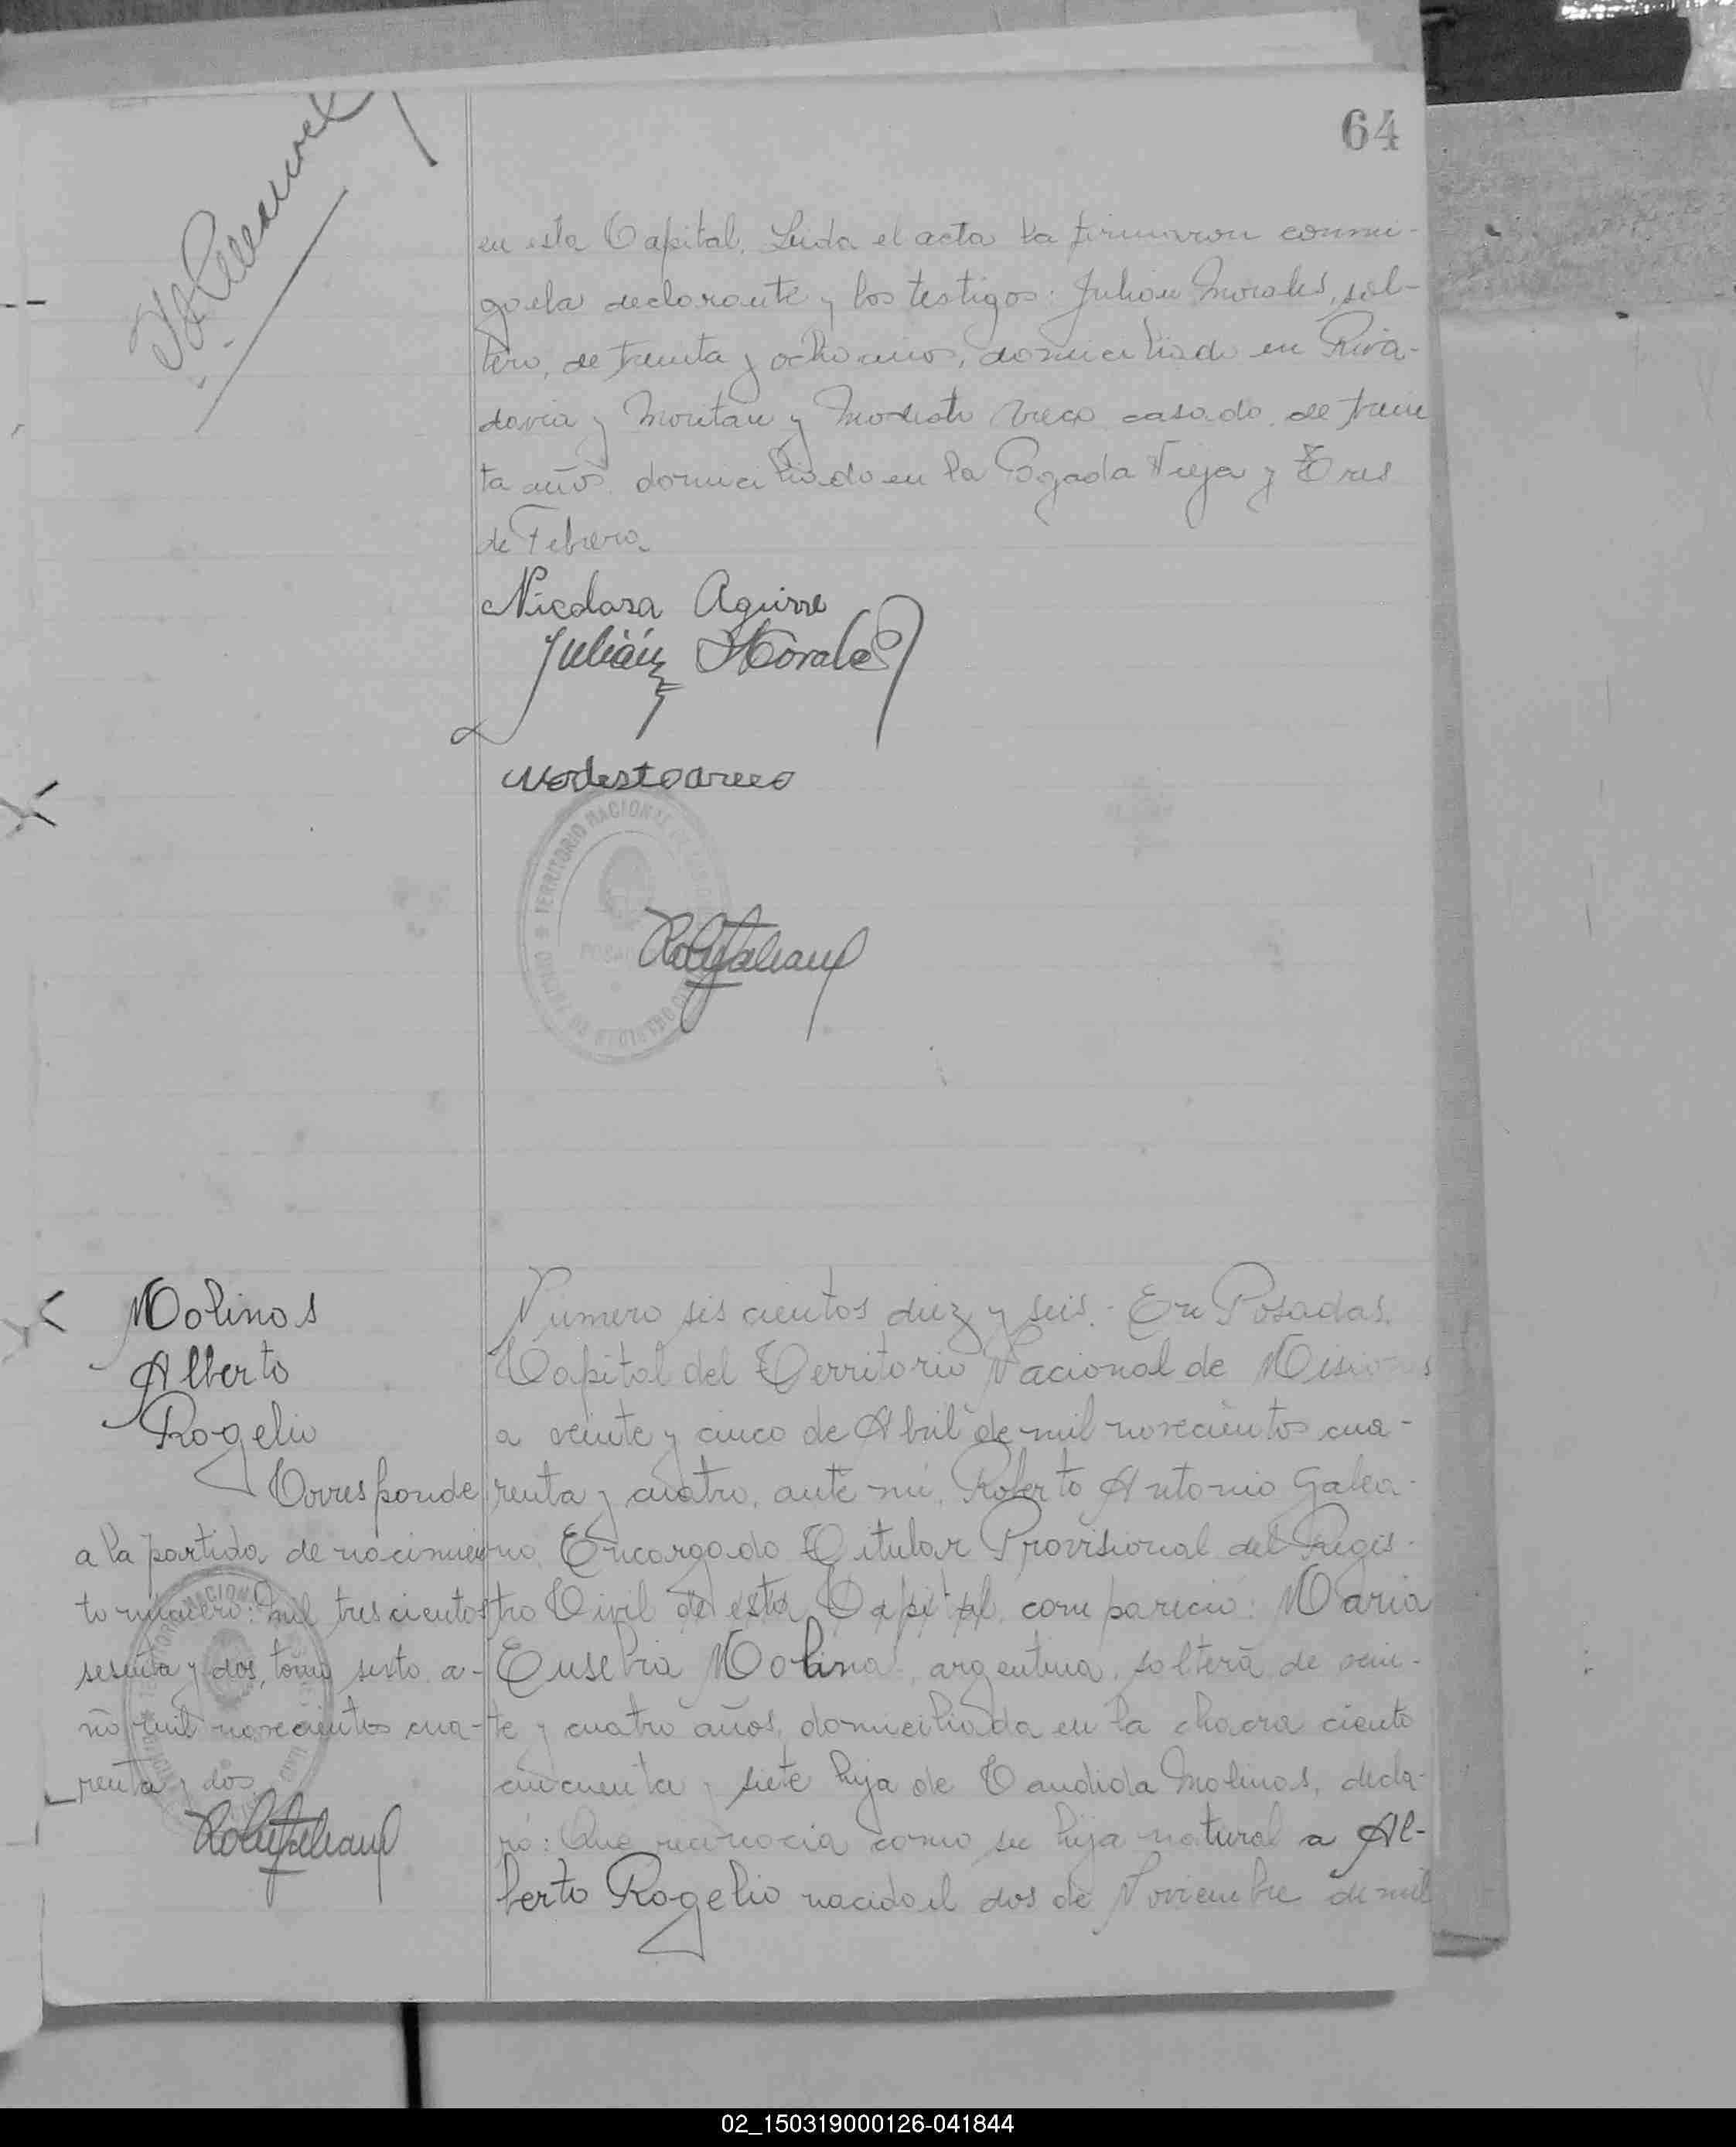 64
en esta Capital. Leida el acta la firmaron conmi-
go ela declarante y los testigos: Julian Morales, sol-
tero, de treinta y ocho años, domiciliado en Riva-
davia y Moritan y Modesto casado de trein
ta años domiciliado en la Bajada Vieja y Tres
de Febrero.
Nicolasa Aguirre
Julián Morales
Modesto areco
TERRITORIO NACIONAL DE
POSADAS
REGISTRO CIVIL
Molinas
Alberto
Rogelio
Corresponde
a la partida de nacimien
to numero: mil trescientos
sesenta y dos, tomo sexto, a-
ño mil novecientos cua-
renta y dos
Numero seis cientos diez y seis.- En Posadas,
Capital del Territorio Nacional de Misiones
a veinte y cinco de Abril de mil novecientos cua-
renta y cuatro, ante mi, Roberto Antonio Galea-
no, Encargado Titular Provisional del Regis-
tro Civil de esta Capital, comparecio: Maria
Eusebia Molina, argentina, soltera de vein-
te y cuatro años, domiciliada en la chacra ciento
cincuenta y siete hija de Candida Molinas, decla-
ró: Que reconocia como su hijo natural a Al-
berto Rogelio nacido el dos de Noviembre de mil
02_150319000126-041844